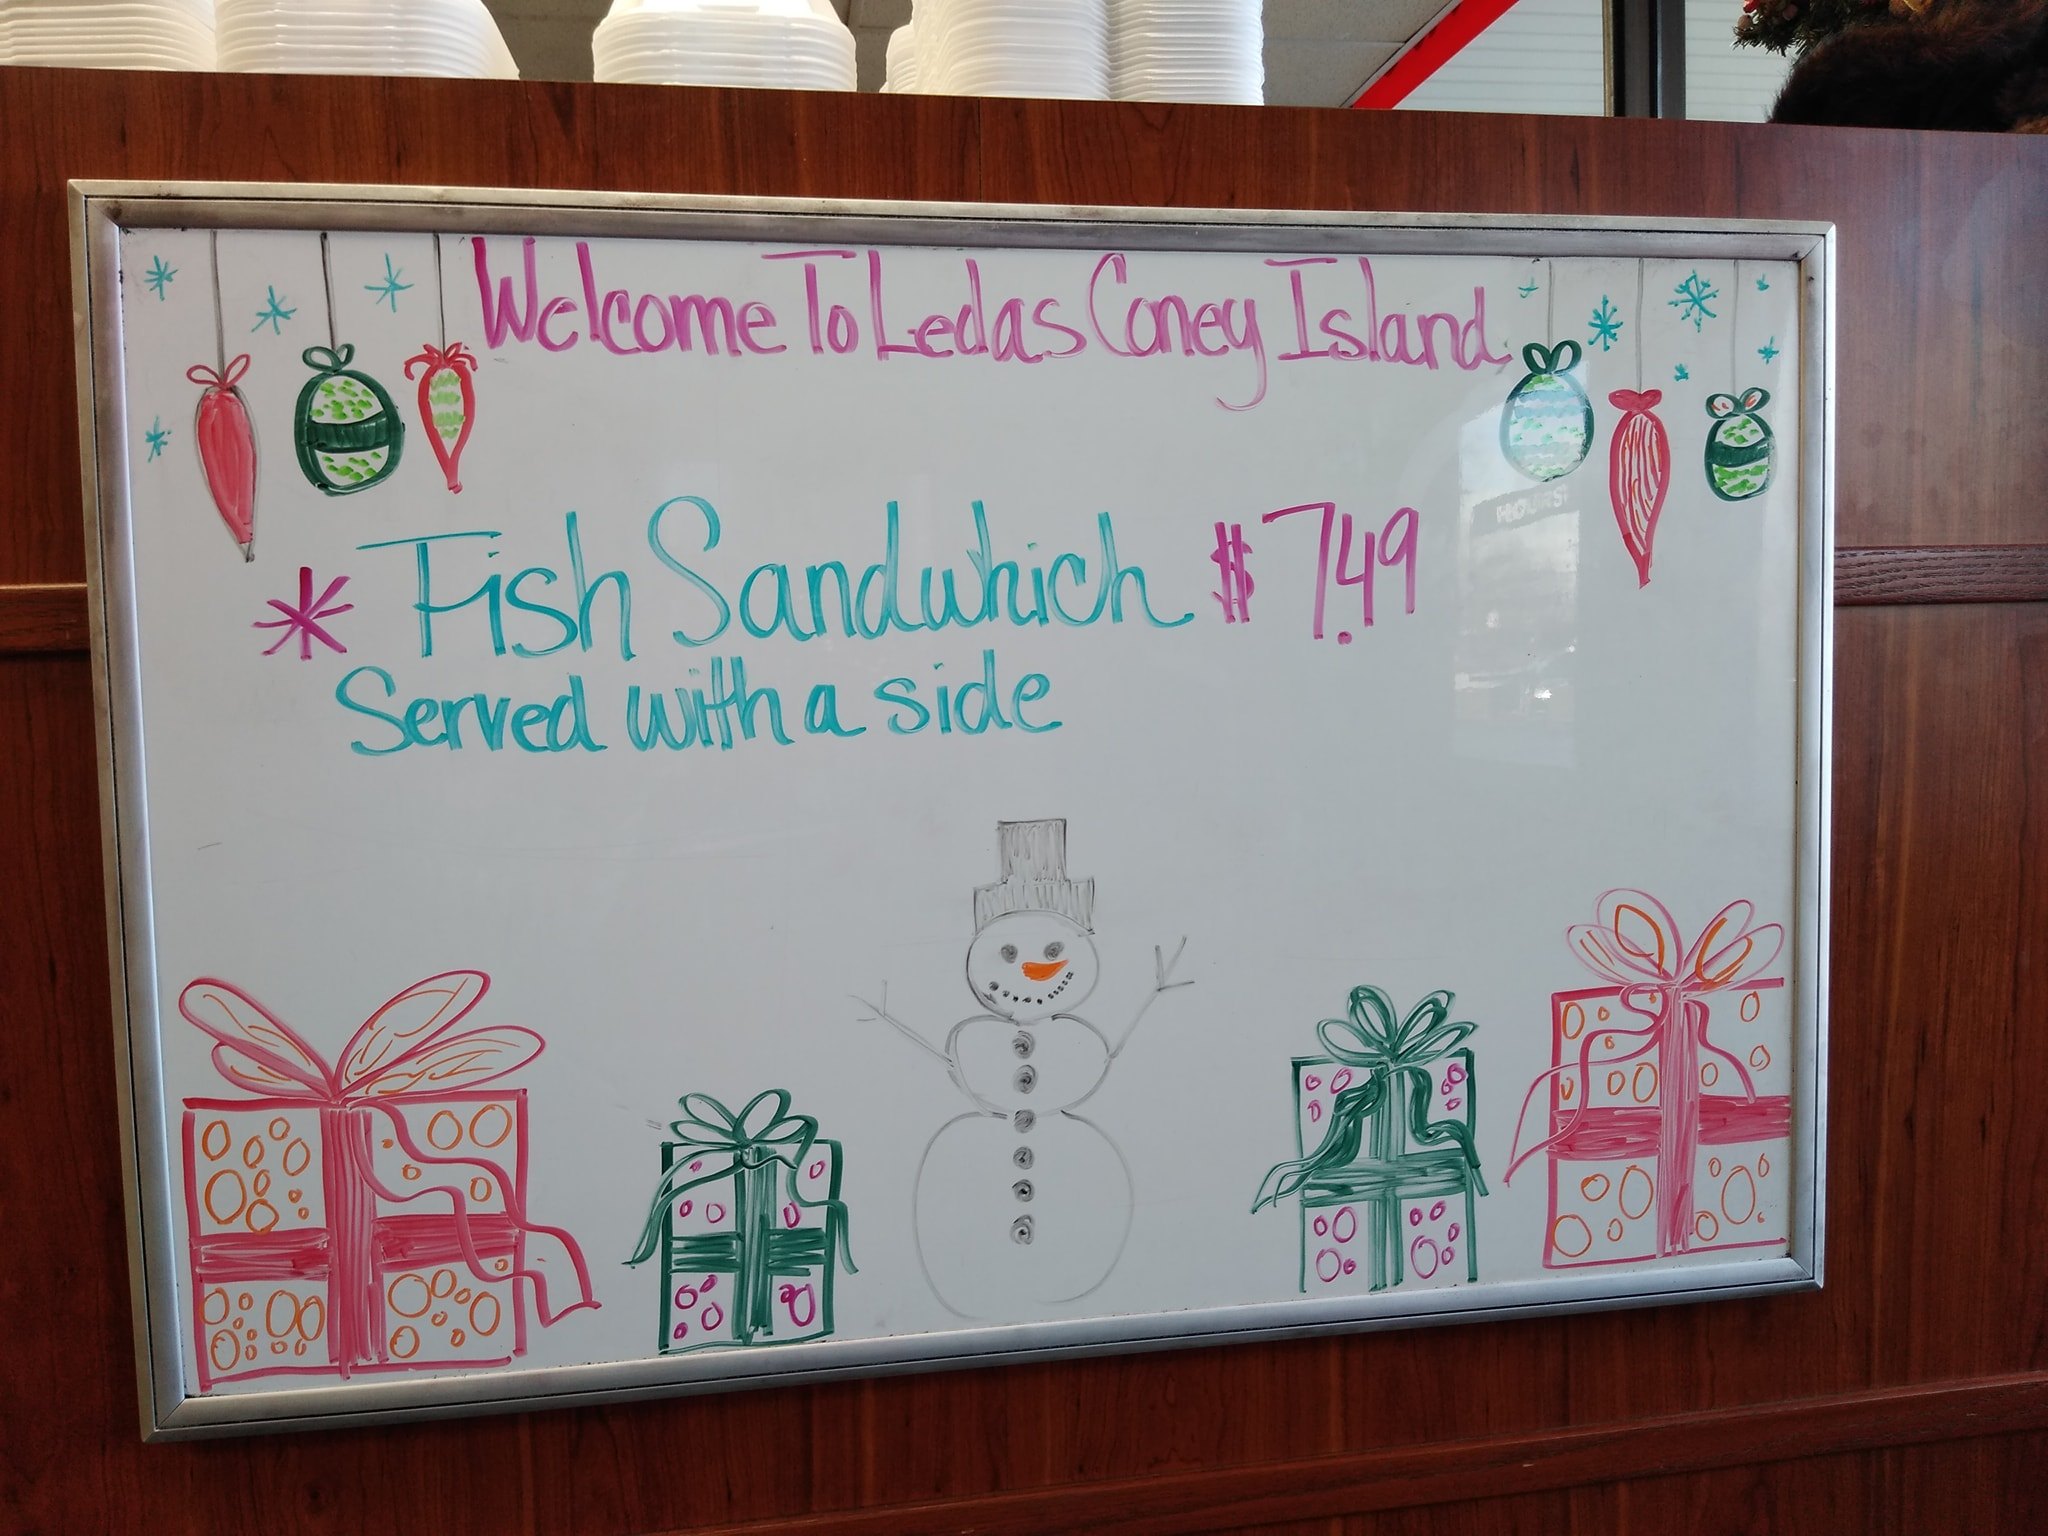 Welcome To Ledas Coney Island
* Fish Sandwhich $7.49
Served with a side
HOURS